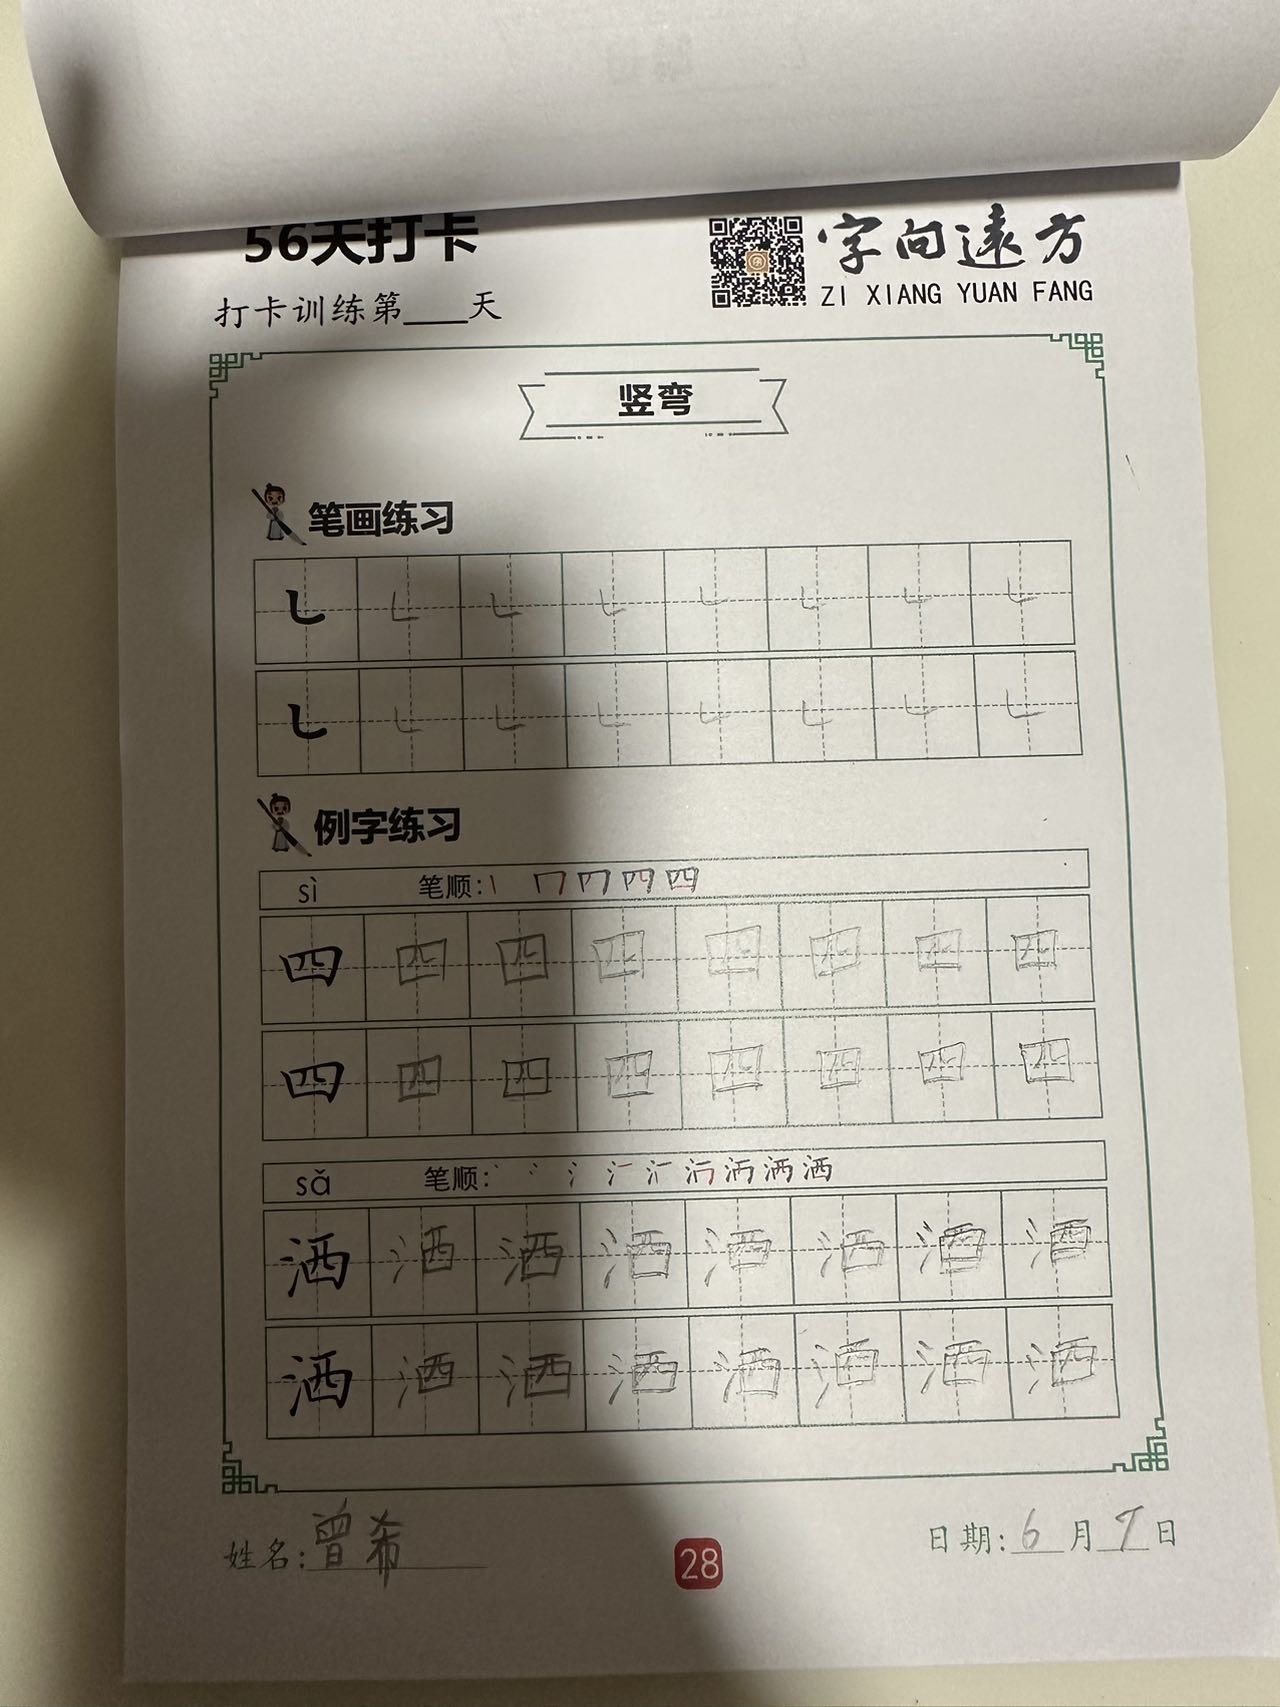 56天打卡
字向遠方
ZI XIANG YUAN FANG
打卡训练第____天
竖弯
笔画练习
㇄ ㇄ ㇄ ㇄ ㇄ ㇄ ㇄ ㇄
㇄ ㇄ ㇄ ㇄ ㇄ ㇄ ㇄ ㇄
例字练习
sì 笔顺:
四 四 四 四 四 四 四 四
四 四 四 四 四 四 四 四
sǎ 笔顺:
洒 洒 洒 洒 洒 洒 洒 洒
洒 洒 洒 洒 洒 洒 洒 洒
姓名:曾希
28
日期:6月9日